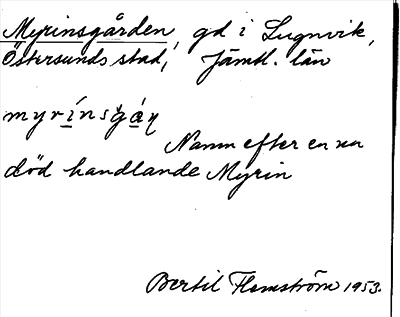 Myrinsgården, gd i Lugnvik,
Östersunds stad, Jämtl. län
Namn efter en nu
död handlande Myrin
Bertil Flemström 1953.